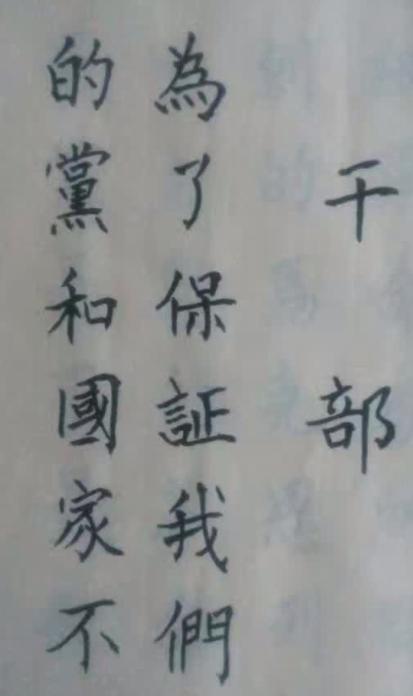 干部
為了保証我們
的黨和國家不